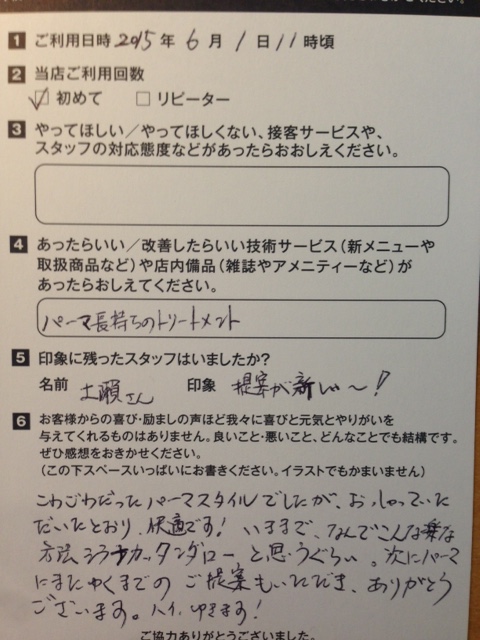 1 ご利用日時 2015年 6月 1日 11時頃
2 当店ご利用回数
初めて リピーター
3 やってほしい/やってほしくない、接客サービスや、
スタッフの対応態度などがあったらおおしえください。
4 あったらいい/改善したらいい技術サービス(新メニューや
取扱商品など)や店内備品(雑誌やアメニティーなど)が
あったらおしえてください。
パーマ長持ちのトリートメント
5 印象に残ったスタッフはいましたか?
名前 土瀬さん 印象 提案が新しい〜!
6 お客様からの喜び・励ましの声ほど我々に喜びと元気とやりがいを
与えてくれるものはありません。良いこと・悪いこと、どんなことでも結構です。
ぜひ感想をおきかせください。
(この下スペースいっぱいにお書きください。イラストでもかまいません)
こわごわだったパーマスタイルでしたが、おっしゃっていた
だいたとおり、快適です! いままで、なんでこんな楽な
方法シラナカッタンダローと思うぐらい。次にパーマ
にまたゆくまでのご提案もいただき、ありがとう
ございます。ハイ、ゆきます!
ご協力ありがとうございました。